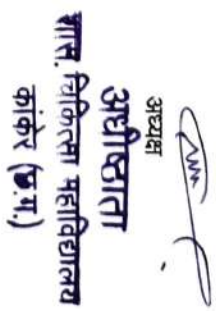 अध्यक्ष
अधीष्ठाता
शास. चिकित्सा महाविद्यालय
कांकेर (छ.ग.)